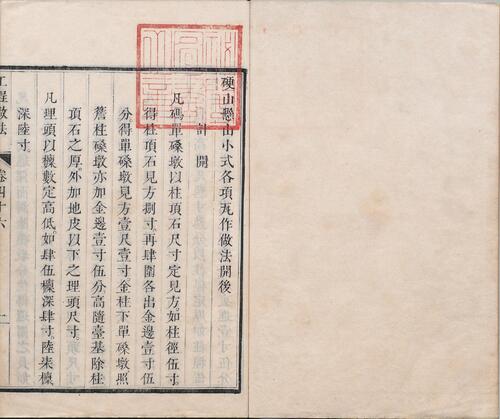 硬山懸山小式各項瓦作做法開後
計開
凡碼單磉墩以柱頂石尺寸定見方如柱徑伍寸
得柱頂石見方捌寸再肆圍各出金邊壹寸伍
分得單磉墩見方壹尺壹寸金柱下單磉墩照
簷柱磉墩亦加金邊壹寸伍分高隨臺基除柱
頂石之厚外加地皮以下之埋頭尺寸
凡埋頭以檁數定高低如肆伍檁深肆寸陸柒檁
深陸寸
工程做法
卷四十六
一